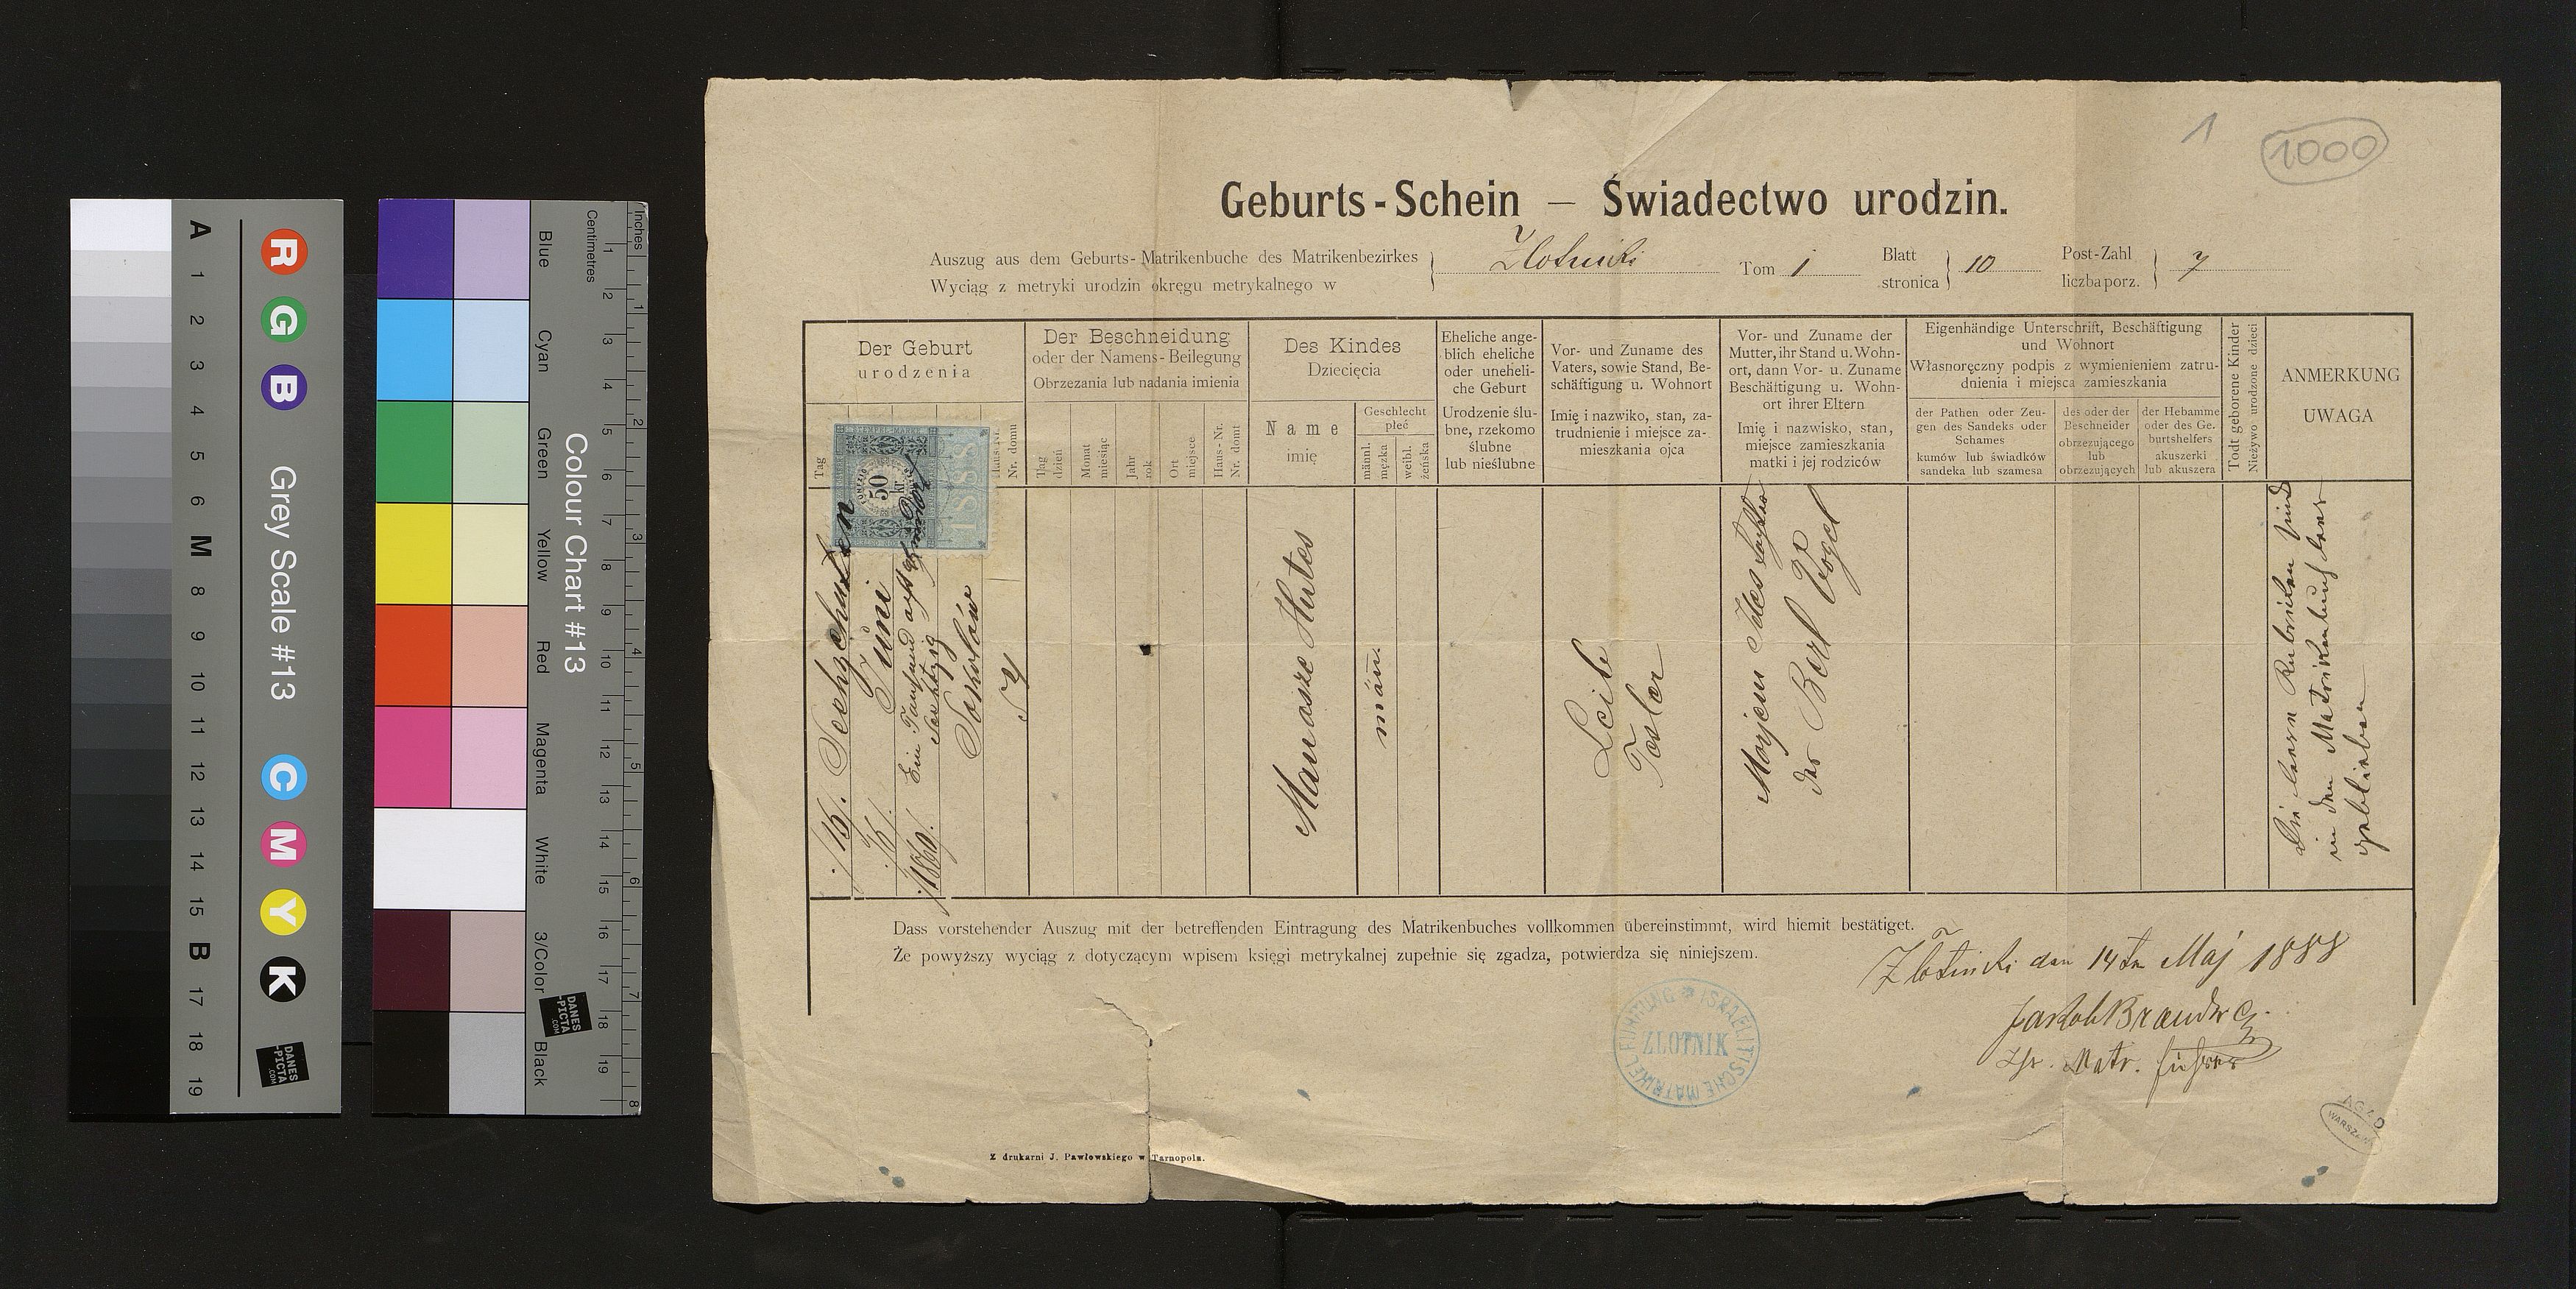 A 1 2 3 4 5 6 M 8 9 10 11 12 13 14 15 B 17 18 19
R G B
Grey Scale #13
C M Y K
DANES
-PICTA
.COM
Blue Cyan Green Yellow Red Magenta White 3/Color Black
Colour Chart #13
Centimetres 1 2 3 4 5 6 7 8 9 10 11 12 13 14 15 16 17 18 19
Inches 1 2 3 4 5 6 7 8
DANES
-PICTA
.COM
1
1000
Geburts-Schein — Świadectwo urodzin.
Auszug aus dem Geburts-Matrikenbuche des Matrikenbezirkes
Wyciąg z metryki urodzin okręgu metrykalnego w
Złotniki
Tom 1
Blatt
stronica
10
Post-Zahl
liczba porz.
7
Der Geburt
urodzenia
Tag
Haus-Nr.
Nr. domu
Der Beschneidung
oder der Namens-Beilegung
Obrzezania lub nadania imienia
Tag
dzień
Monat
miesiąc
Jahr
rok
Ort
miejsce
Haus-Nr.
Nr. domu
Des Kindes
Dziecięcia
Name
imię
Geschlecht
płeć
männl.
męzka
weibl.
żeńska
Eheliche ange-
blich eheliche
oder uneheli-
che Geburt
Urodzenie ślu-
bne, rzekomo
ślubne
lub nieślubne
Vor- und Zuname des
Vaters, sowie Stand, Be-
schäftigung u. Wohnort
Imię i nazwiko, stan, za-
trudnienie i miejsce za-
mieszkania ojca
Vor- und Zuname der
Mutter, ihr Stand u. Wohn-
ort, dann Vor- u. Zuname
Beschäftigung u. Wohn-
ort ihrer Eltern
Imię i nazwisko, stan,
miejsce zamieszkania
matki i jej rodziców
Eigenhändige Unterschrift, Beschäftigung
und Wohnort
Własnoręczny podpis z wymienieniem zatru-
dnienia i miejsca zamieszkania
der Pathen oder Zeu-
gen des Sandeks oder
Schames
kumów lub świadków
sandeka lub szamesa
des oder der
Beschneider
obrzezującego
lub
obrzezujących
der Hebamme
oder des Ge-
burtshelfers
akuszerki
lub akuszera
Todt geborene Kinder
Nieżywo urodzone dzieci
ANMERKUNG
UWAGA
STEMPEL-MARKE
50
kr
1888
/16/. Sechzehnten
/6/. Juni
/1860/. Ein Tausend acht Hundert
Sechtzig
Sokolów
57
Manasze Hutes
män.
Leib
Tesler
Marjem Jeles Tochter
des Berl Vogel
Die leeren Rubriken sind
in den Matrikenbuch leer
geblieben
Dass vorstehender Auszug mit der betreffenden Eintragung des Matrikenbuches vollkommen übereinstimmt, wird hiemit bestätiget.
Że powyższy wyciąg z dotyczącym wpisem księgi metrykalnej zupełnie się zgadza, potwierdza się niniejszem.
Złotniki den 14ten Maj 1888
Jakob Brandes
Isr. Matr. Führer
ISRAELITISCHE MATRIKELFÜHRUNG
ZLOTNIK
AGAD
WARSZAWA
Z drukarni J. Pawłowskiego w Tarnopolu.